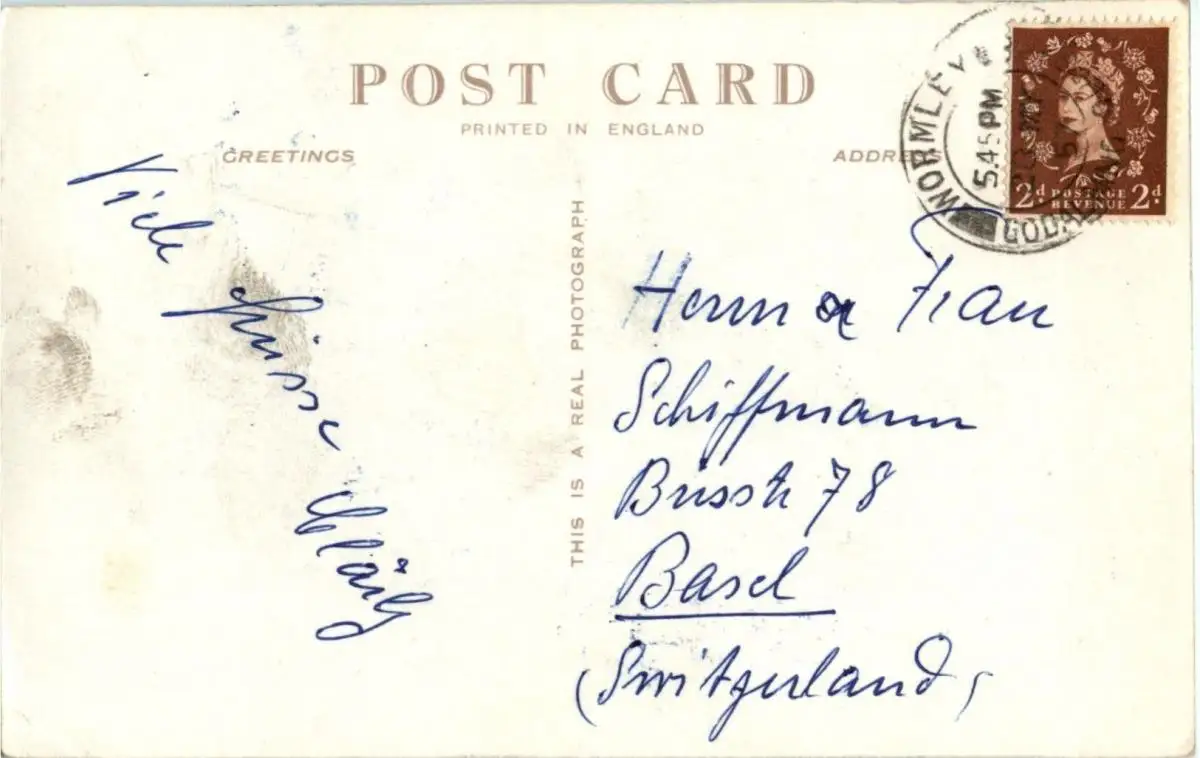 POST CARD
PRINTED IN ENGLAND
GREETINGS
ADDRESS
WORMLEY
5.45 PM
GODALMING
2d POSTAGE 2d
REVENUE
THIS IS A REAL PHOTOGRAPH
Viele
Grüsse
Herrn & Frau
Schiffmann
78
Basel
(Switzerland)